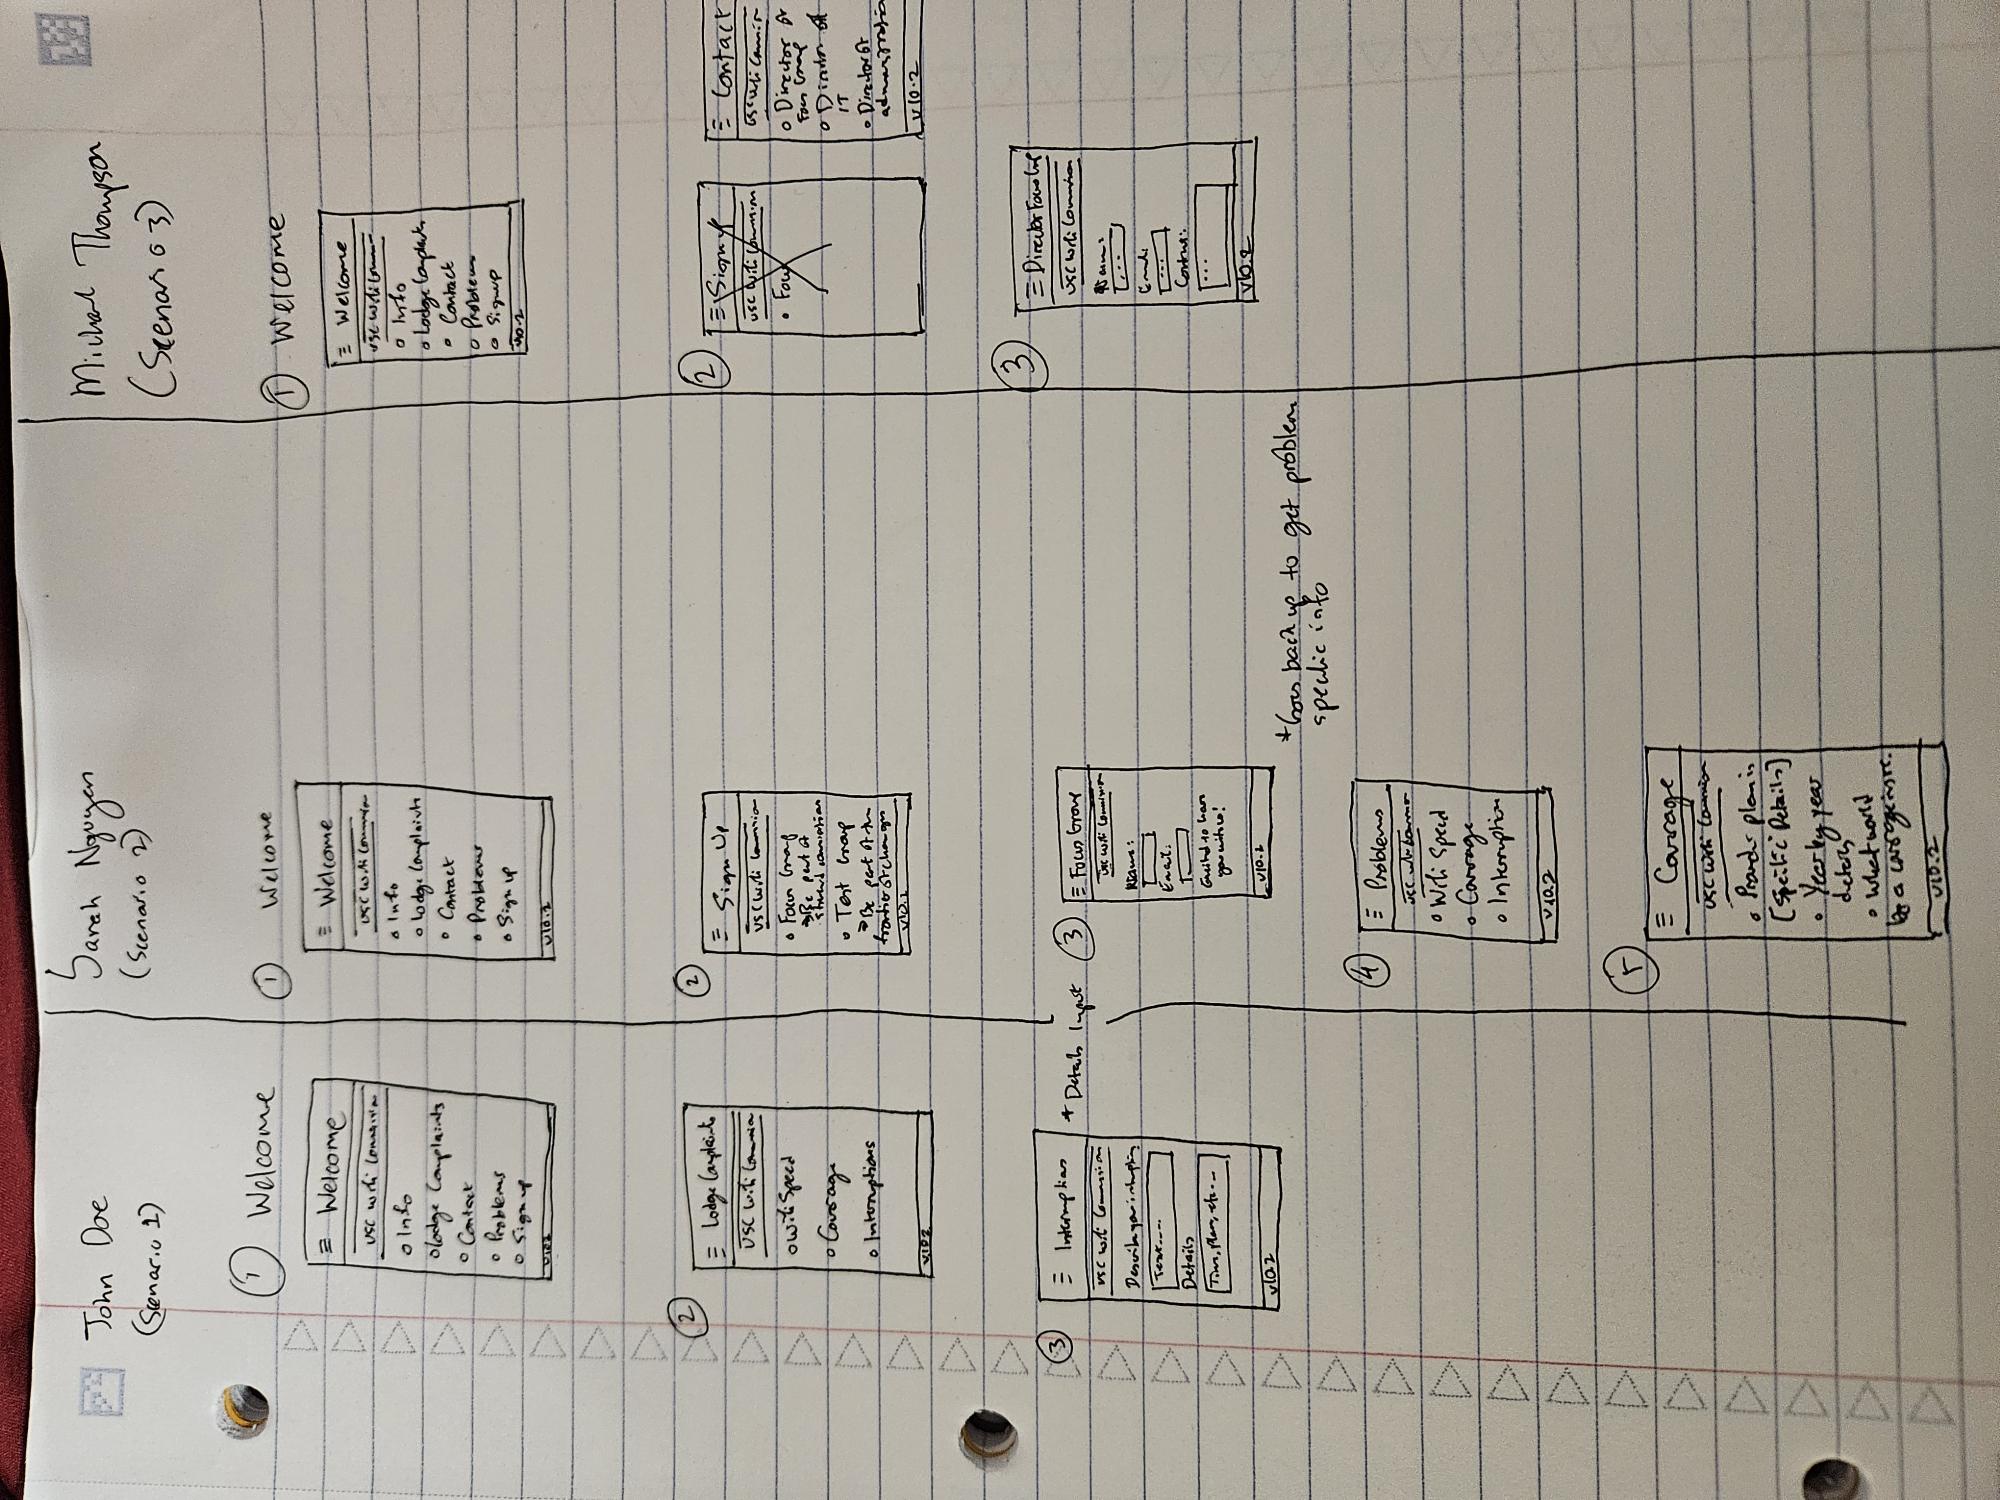 John Doe
(Scenario 1)
1 Welcome
Welcome
USC Wifi Commission
Info
Lodge Complaints
Contact
Problems
Sign up
v10.2
2
Lodge Complaints
USC Wifi Commission
Wifi Speed
Coverage
Interruptions
v10.2
3
Interruptions
* Details Input
USC Wifi Commission
Describe your interruption
Text....
Details
Time, place, etc...
v10.2
Sarah Nguyen
(Scenario 2)
1 Welcome
Welcome
USC Wifi Commission
Info
Lodge Complaints
Contact
Problems
Sign up
v10.2
2
Sign Up
USC Wifi Commission
Focus Group
Be part of
Test Group
Be part of the
frontier of changes
v10.2
3
Focus Group
USC Wifi Commission
Name:
Email:
Excited to have
you with us!
v10.2
* Goes back up to get problem
specific info
4
Problems
USC Wifi Commission
Wifi Speed
Coverage
Interruption
v10.2
5
Coverage
USC Wifi Commission
plan is
[Specific Details]
Year by year
details
What would
be a coverage
v10.2
Michael Thompson
(Scenario 3)
1 Welcome
Welcome
USC Wifi Comm
Info
Lodge Complaints
Contact
Problems
Sign up
v10.2
2
Sign up
USC Wifi Commission
Focu
Contact
USC Wifi Commis
Director of
Focus Group
Director of
IT
Director of
administratio
v10.2
3
Director Focus Grp
USC Wifi Commission
Name:
...
Email:
...
...
v10.2